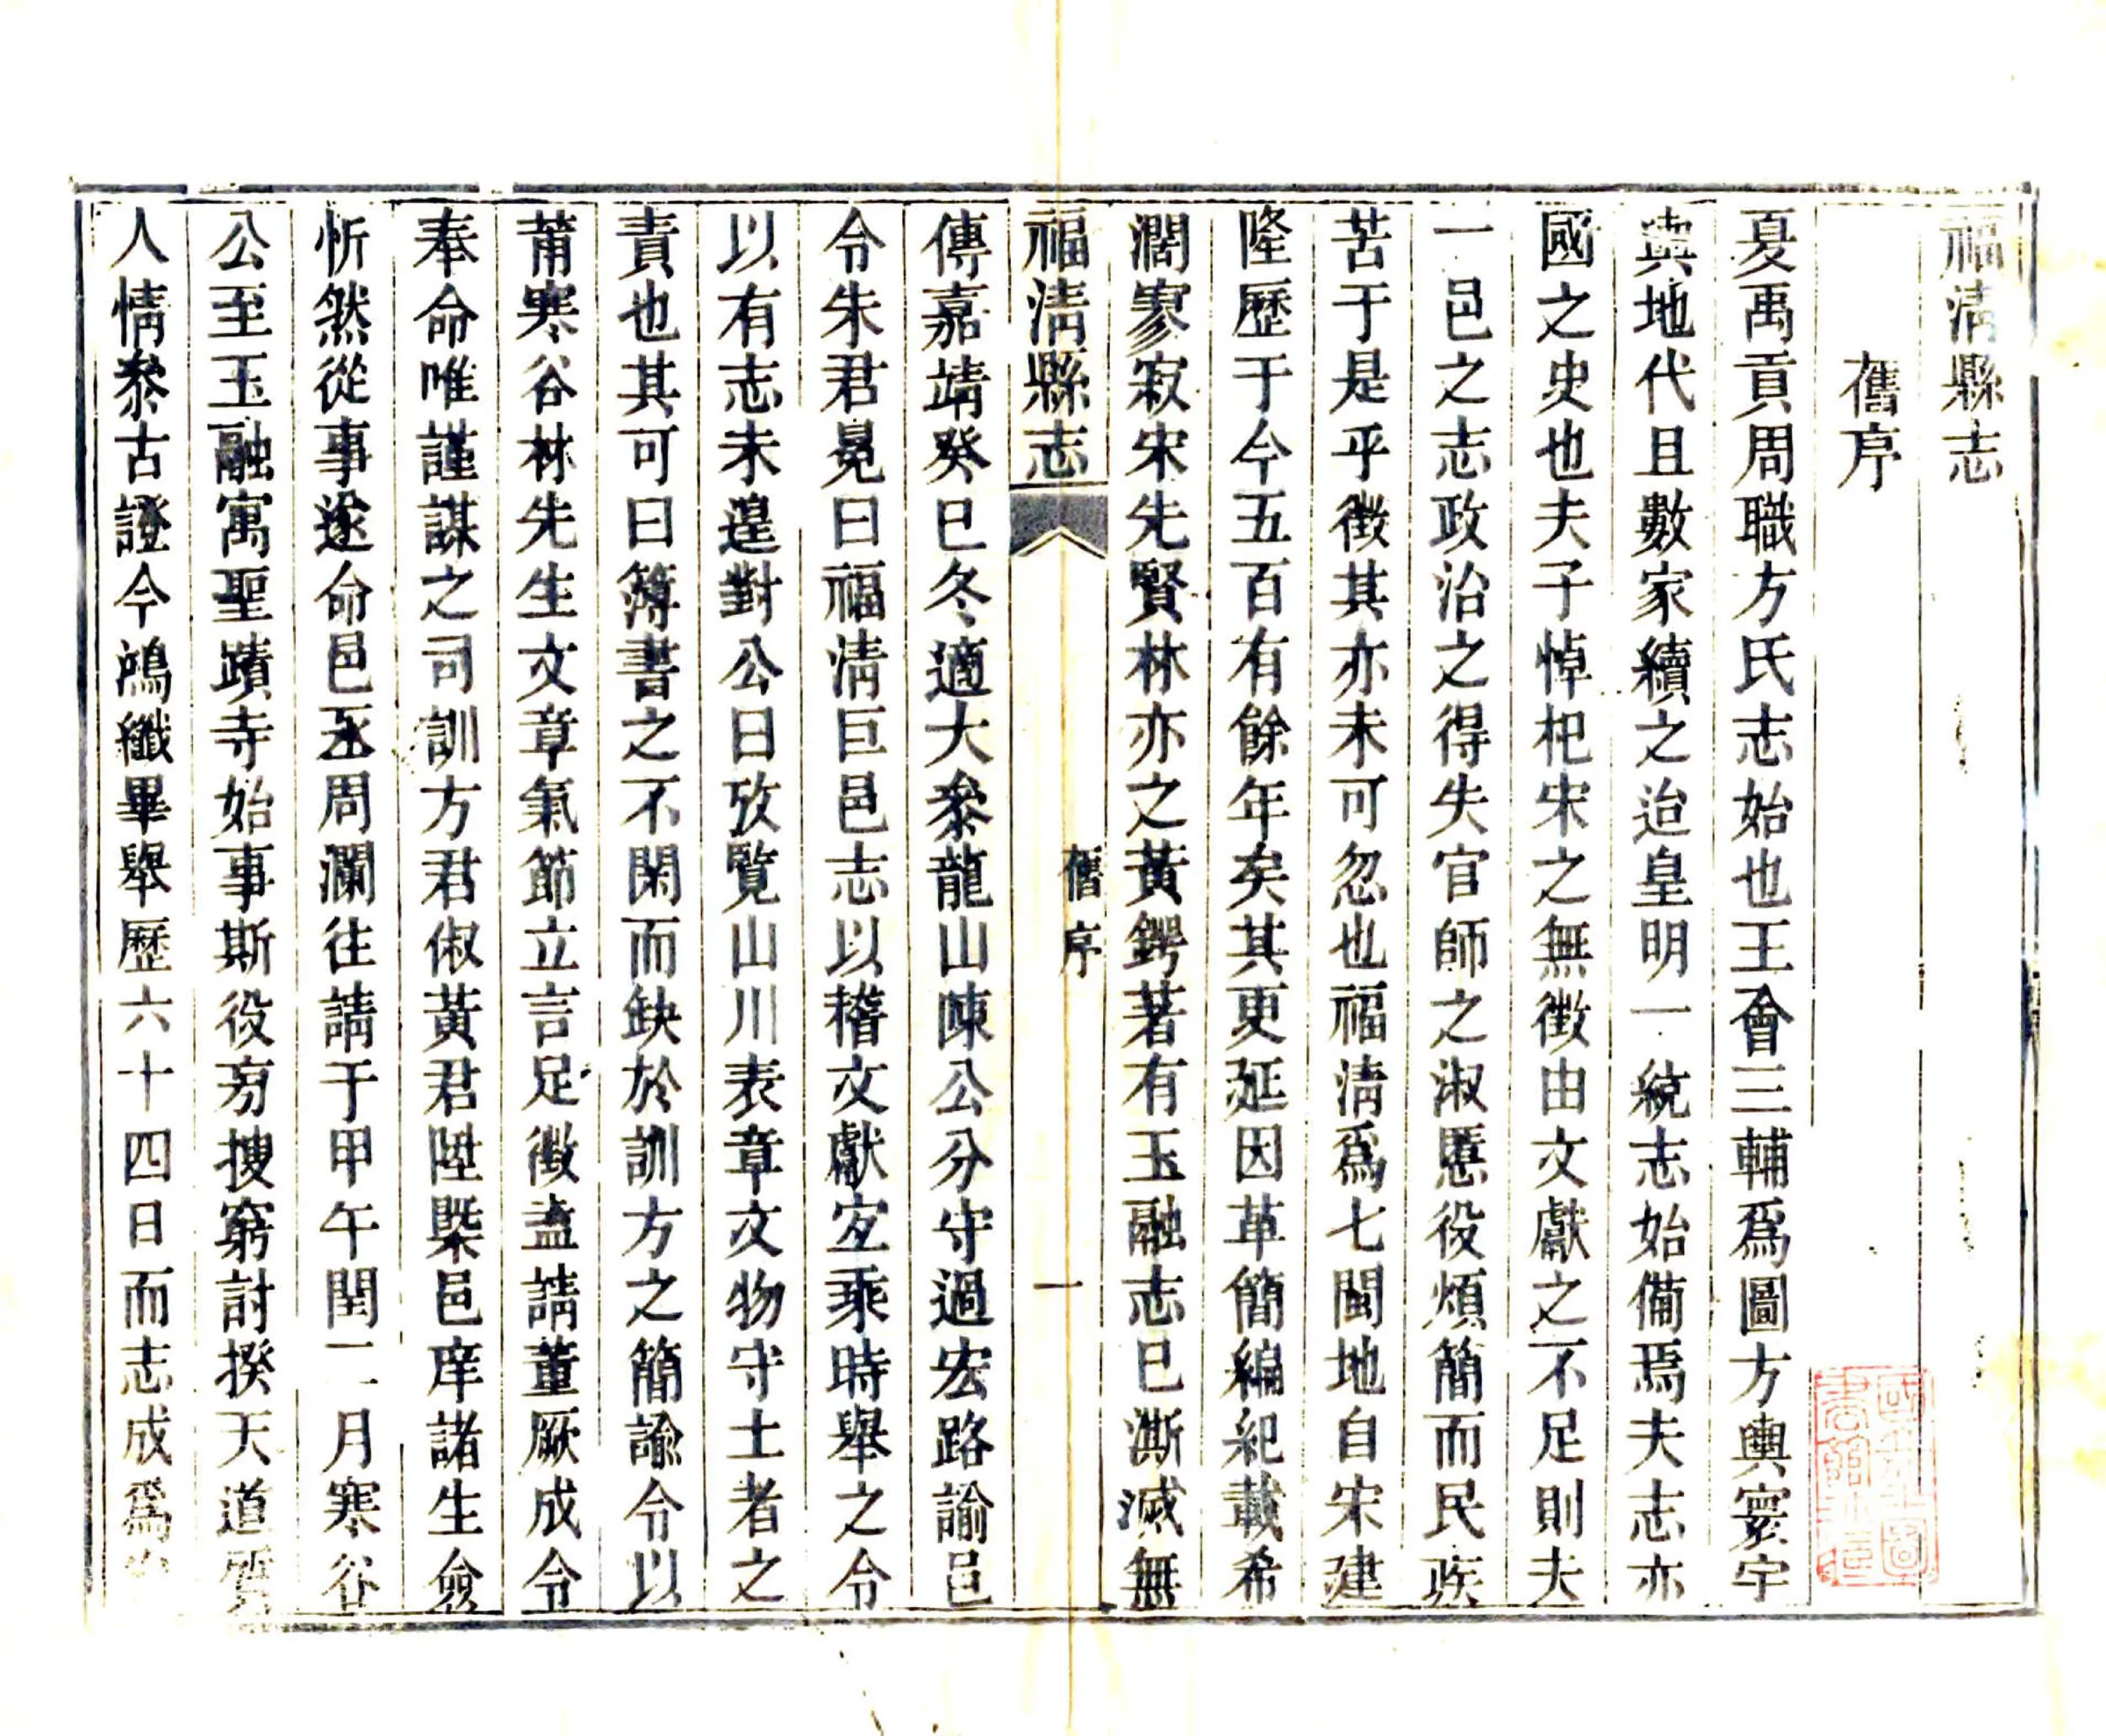 福淸縣志
舊序
夏禹貢周職方氏志始也王會三輔爲圖方輿寰宇
輿地代且數家續之迨皇明一統志始備焉夫志亦
國之史也夫子悼杞宋之無徵由文獻之不足則夫
一邑之志政治之得失官師之淑慝役煩簡而民疾
苦于是乎徵其亦未可忽也福淸爲七閩地自宋建
隆歷于今五百有餘年矣其更延因革簡編紀載希
濶寥寂宋先賢林亦之黃鍔著有玉融志已澌滅無
福淸縣志
舊序
一
傳嘉靖癸巳冬適大叅龍山陳公分守過宏路諭邑
令朱君晃曰福淸巨邑志以稽文獻宐乘時舉之令
以有志未遑對公曰攷覽山川表章文物守土者之
責也其可曰簿書之不閑而缺於訓方之簡諭令以
莆寒谷林先生文章氣節立言足徵盍請董厥成令
奉命唯謹謀之司訓方君俶黃君陞槩邑庠諸生僉
忻然從事遂命邑丞周瀾往請于甲午閏二月寒谷
公至玉融寓聖蹟寺始事斯役旁搜窮討揆天道質
人情叅古證今鴻纖畢舉歷六十四日而志成爲